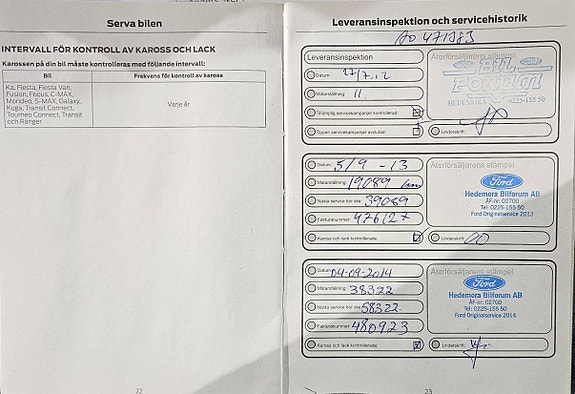 Serva bilen
INTERVALL FÖR KONTROLL AV KAROSS OCH LACK
Karossen på din bil måste kontrolleras med följande intervall:
Bil
Frekvens för kontroll av kaross
Ka, Fiesta, Fiesta Van,
Fusion, Focus, C-MAX,
Mondeo, S-MAX, Galaxy,
Kuga, Transit Connect,
Tourneo Connect, Transit
och Ranger
Varje år
22
Leveransinspektion och servicehistorik
AO 471383
Leveransinspektion
Datum:
Mätarställning: 11
Återförsäljarens stämpel
HEDEMORA 0225-155 50
Underskrift:
Datum: 5/9 -13
Mätarställning: 19089
Nästa service bör ske: 39089
Fakturanummer:
Kaross och lack kontrollerade:
Återförsäljarens stämpel
Ford
Hedemora Bilforum AB
ÅF-nr: 02700
Tel: 0225-155 50
Ford Originalservice 2013
Underskrift:
Datum: 04-09-2014
Mätarställning: 38322
Nästa service bör ske: 58322
Fakturanummer: 480923
Kaross och lack kontrollerade:
Återförsäljarens stämpel
Ford
Hedemora Bilforum AB
ÅF-nr: 02700
Tel: 0225-155 50
Ford Originalservice 2014
Underskrift:
23